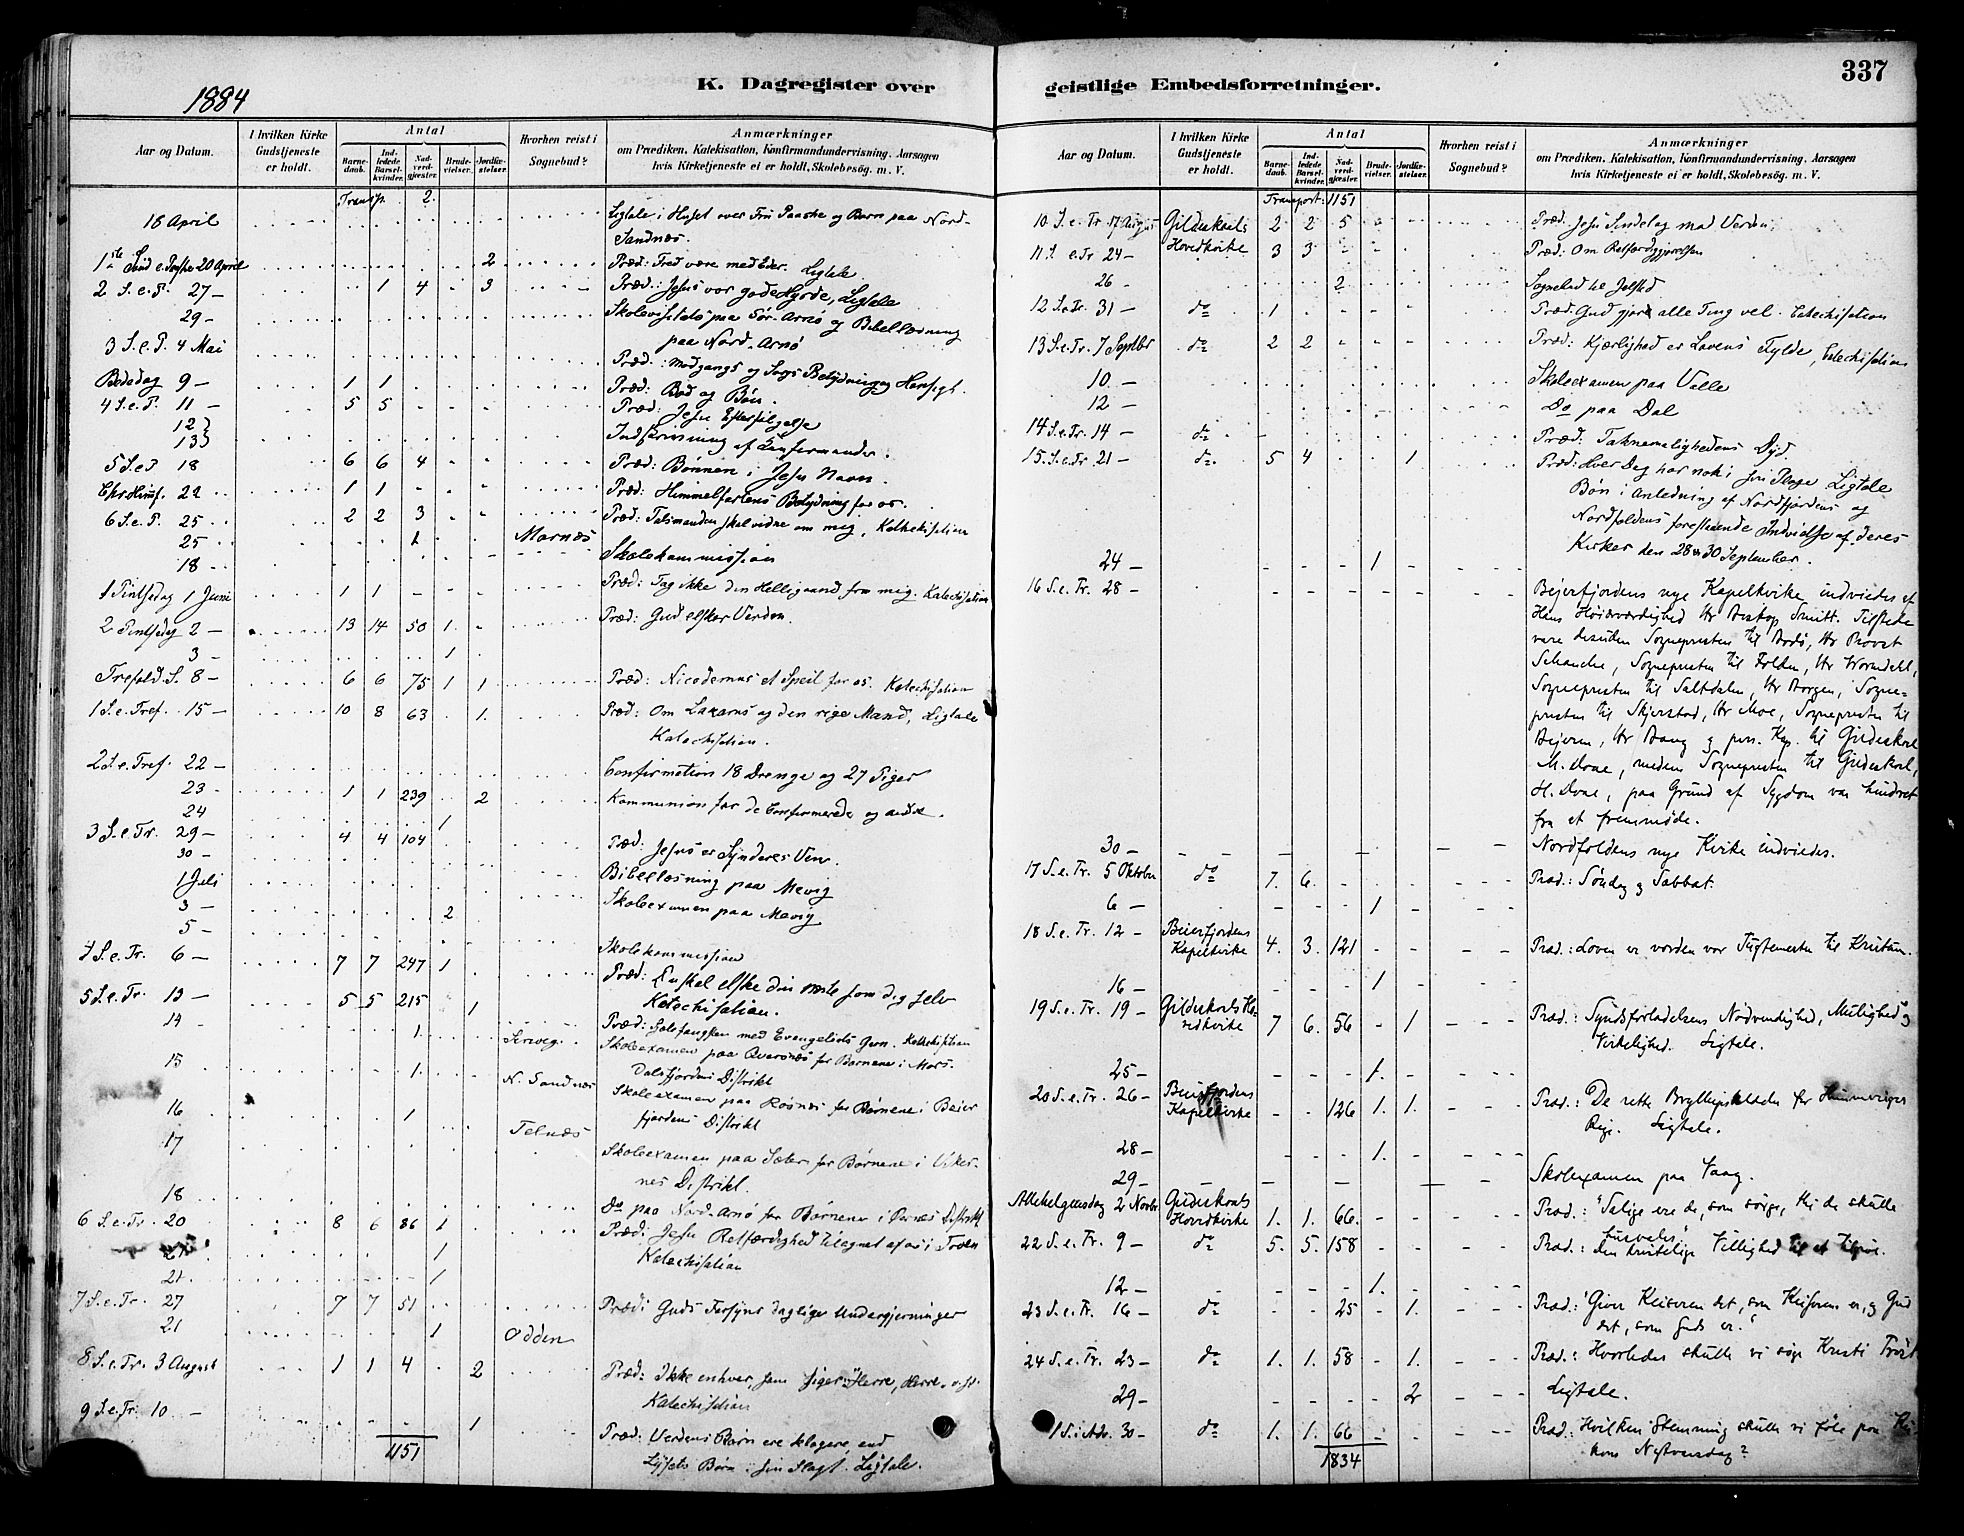 337
K. Dagregister over geistlige Embedsforretninger.
1884
Aar og Datum.
I hvilken Kirke Gudstjeneste er holdt.
Antal
Barnedaab.
Indledede Barselkvinder.
Nadverdgjæster.
Brudevielser.
Jordfæstelser.
Hvorhen reist i Sognebud?
Anmærkninger
om Prædiken, Katekisation, Konfirmandundervisning, Aarsagen
hvis Kirketjeneste ei er holdt, Skolebesøg. m. V.
Transp. 2.
18 April Ligtale i Huset over Fru Paaske og Barn paa Nord-
Sandnæs.
1ste Sønd e. Paaske 20 April 2 Præd: Fred være med Eder. Ligtale
2 S. e. P. 27 – 1 4 3 Præd: Jesus vor gode Hyrde, Ligtale
29 – Skolevisitats paa Sør-Arnø og Bibellæsning
paa Nord-Arnø
3 S. e. P. 4 Mai Præd: Modgangs og Sorgs Betydning og Hensigt.
Bededag 9 – 1 1 Præd: Bod og Bøn.
4 S. e. P. 11 – 5 5 Præd: Jesu Efterfølgelse
12
13 Indskrivning af Konfirmander.
5 S. e. P. 18 6 6 4 Præd: Bønnen i Jesu Navn.
Chr. Himf. 22 1 1 Præd: Himmelfartens Betydning for os.
6 S. e. P. 25 2 2 3 Præd: Talsmanden skal vidne om mig, Kathekisation
25 1 Marnæs
18 Skolekommission
1 Pintsedag 1 Juni 1 1 Præd: Tag ikke din Helligaand fra mig. Katechisation
2 Pintsedag 2 – 13 14 50 1 Præd: Gud elsker Verden.
3 – 1
Trefold. S. 8 – 6 6 75 1 1 Præd: Nicodemus et Speil for os. Katechisation
1 S. e. Tref. 15 – 10 8 63 1. Præd: Om Lazarus og den rige Mand, Ligtale
Katechisation.
2 S. e. Tref. 22 – Confirmation 18 Drenge og 27 Piger
23 – 1 1 239 2 Kommunion for de Confirmerede og andre.
24 1
3 S. e. Tr. 29 – 4 4 104 Præd: Jesus er Synderes Ven.
30 –
1 Juli Bibellæsning paa Mevig
3 – 2 Skoleexamen paa Mevig
5 – Skolekommission
4 S. e. Tr. 6 – 7 7 247 1 Præd: Du skal elske din Næste som dig selv
Katechisation.
5 S. e. Tr. 13 – 5 5 215 1 Præd: Solefangsten med Evangeliets Garn. Kathekisation
14 – 1. Skoleexamen paa Qversnæs for Børnene i Mors-
Dalsfjordens Distrikt
15 1. N. Sandnæs Skoleexamen paa Røsnæs for Børnene i Beier
fjordens Distrikt
16 1 Telnæs
17 Skoleexamen paa Sæter for Børnene i
nes Distrikt.
18 do paa Nord-Arnø for Børnene i Ørnæs Distrikt
6 S. e. Tr. 20 8 6 86 1 Præd: Jesu Retfærdighed tilegnet af os i Troen
Katechisation
1
21 1
7 S. e. Tr. 27 7 7 51 Præd: Guds Forsyns daglige Undergjerninger
21 1 Odden
8 S. e. Tr. 3 August 1 1 4 2 Præd: Ikke enhver, som siger: Herre, Herre
Katechisation
9 S. e. Tr. 10 – 1 Præd: Verdens Børn ere klogere, end
Lysets Børn i sin Slægt. Ligtale.
1151
Aar og Datum.
I hvilken Kirke Gudstjeneste er holdt.
Antal
Barnedaab.
Indledede Barselkvinder.
Nadverdgjæster.
Brudevielser.
Jordfæstelser.
Hvorhen reist i Sognebud?
Anmærkninger
om Prædiken, Katekisation, Konfirmandundervisning, Aarsagen
hvis Kirketjeneste ei er holdt, Skolebesøg. m. V.
Transport: 1151
10 S. e. Tr. 17 August Gildeskaals 2 2 5 Præd: Jesu Sindelag mod Verden.
11 S. e. Tr. 24 – Hovedkirke 3 3 Præd: Om Retfærdiggjørelsen
26 – 2 Sognebud til Jelstad
12 S. e. Tr. 31 – do 1 Præd: Gud gjør alle Ting vel. Catechisation
13 S. e. Tr. 7 Septbr do 2 2 Præd: Kjærlighed er Lovens Fylde, Catechisation
10 – Skoleexamen paa Valle
12 – Do paa Dal
14 S. e. Tr. 14 – do Præd: Taknemelighedens Dyd.
15. S. e. Tr. 21 – do. 5 4 1 Præd: Hver Dag har nok i sin Plage Ligtale
Bøn i Anledning af Nordfjordens og
Nordfoldens forestaaende Indvielse af deres
Kirker den 28 & 30 September.
24 – 1
16 S. e. Tr. 28 – Beierfjordens nye Kapelkirke indviedes af
Hans Høiærværdighed Hr Biskop Smitt. Tilstede
vare desuden Sognepresten til Bodø, Hr Provst
Schanche, Sognepresten til Folden, Hr Worndahl,
Sognepresten til Saltdalen, Hr Borgen, Sogne-
presten til Skjerstad, Hr Moe, Sognepresten til
Beieren, Hr Bang og pers. Kap. til Gildeskaal
M. Hvae, medens Sognepresten til Gildeskaal,
H. Hvae, paa Grund af Sygdom var hindret
fra et fremmøde.
30 – Nordfoldens nye Kirke indviedes.
17 S. e. Tr. 5 Oktober do 7. 6. Præd.: Søndag og Sabbat.
6 – 1
18 S. e. Tr. 12 – Beierfjordens Kapelkirke 4. 3. 121 Præd.: Loven er vorden vor Tugtemester til Kristum.
16 – 1
19 S. e. Tr. 19 – Gildeskaals Hovedkirke 7 6. 56 1 Præd.: Syndsforladelsens Nødvendighed, Mulighed og
Virkelighed. Ligtale.
25 – 1.
20 S. e. Tr. 26 – Beierfjordens Kapelkirke 126 1. 1. Præd.: De rette Bryllupsklæder for Himmeriges
Rige. Ligtale.
28 – 1.
29 – Skolexamen paa Vaag.
Allehelgensdag 2 Novbr. Gildeskaals Hovedkirke 1. 1. 66. Præd.: "Salige ere de, som sørge, thi de skulle
husvales"
22 S. e. Tr. 9 – do 5. 5. 158 Præd.: Den kristelige Villighed til at tilgive.
12 – 1.
23 S. e. Tr. 16 – do 25 1. Præd.: "Giver Keiseren det, som Keiserens er, og Gud
det, som Guds er."
24 S. e. Tr. 23 – do 1. 1. 58 1. Præd.: Hvorledes skulle vi søge Kristi Trøst
29 – 2 Ligtale.
1 S. i Adv. 30 – do 1. 1. 66 Præd.: Hvilken Stemning skulle vi føle paa Kir-
kens Nytaarsdag?
1834